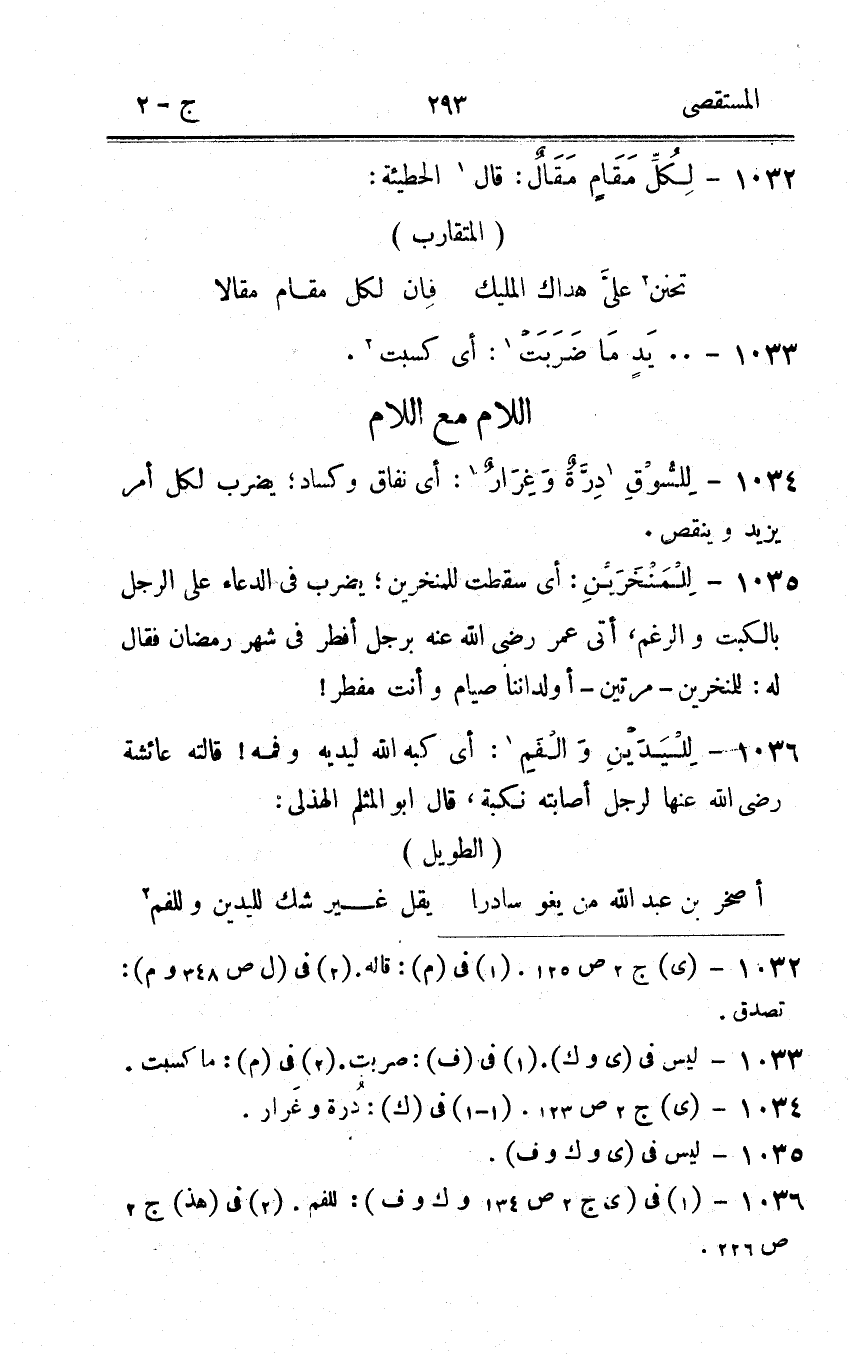 المستقصى ٢٩٣ ج - ٢
١٠٣٢ - لِكُلِّ مَقَامٍ مَقَالٌ: قال ١ الحطيئة:
( المتقارب )
تحنن٢ علىَّ هداك المليك فإن لكل مقام مقالا
١٠٣٣ - ٠٠ يَدٍ مَا ضَرَبَتْ١: أى كسبت٢ .
اللام مع اللام
١٠٣٤ - لِلسُّوْقِ ١دِرَّةٌ وَغِرَارٌ١: أى نفاق وكساد؛ يضرب لكل أمر
يزيد و ينقص .
١٠٣٥ - لِلْمَنْخَرَيْنِ: أى سقطت للمنخرين؛ يضرب فى الدعاء على الرجل
بالكبت و الرغم، أتى عمر رضى الله عنه برجل أفطر فى شهر رمضان فقال
له: للنخرين - مرتين - أولداننا صيام و أنت مفطر!
١٠٣٦ - لِلْيَدَيْنِ وَ الْفَمِ١: أى كبه الله ليديه و فمه! قالته عائشة
رضى الله عنها لرجل أصابته نكبة، قال ابو المثلم الهذلى:
( الطويل )
أ صخر بن عبد الله من يغو سادرا يقل غير شك لليدين و للفم٢
١٠٣٢ - (ى) ج ٢ ص ١٢٥ . (١) فى (م): قاله. (٢) فى (ل ص ٣٤٨ و م):
تصدق .
١٠٣٣ - ليس فى (ى و ك). (١) فى (ف): صربت. (٢) فى (م): ما كسبت .
١٠٣٤ - (ى) ج ٢ ص ١٢٣ . (١-١) فى (ك): دُرة و غَرار .
١٠٣٥ - ليس فى (ى و ك و ف) .
١٠٣٦ - (١) فى (ى ج ٢ ص ١٣٤ و ك و ف): للفم . (٢) فى (هذ) ج ٢
ص ٢٢٦ .